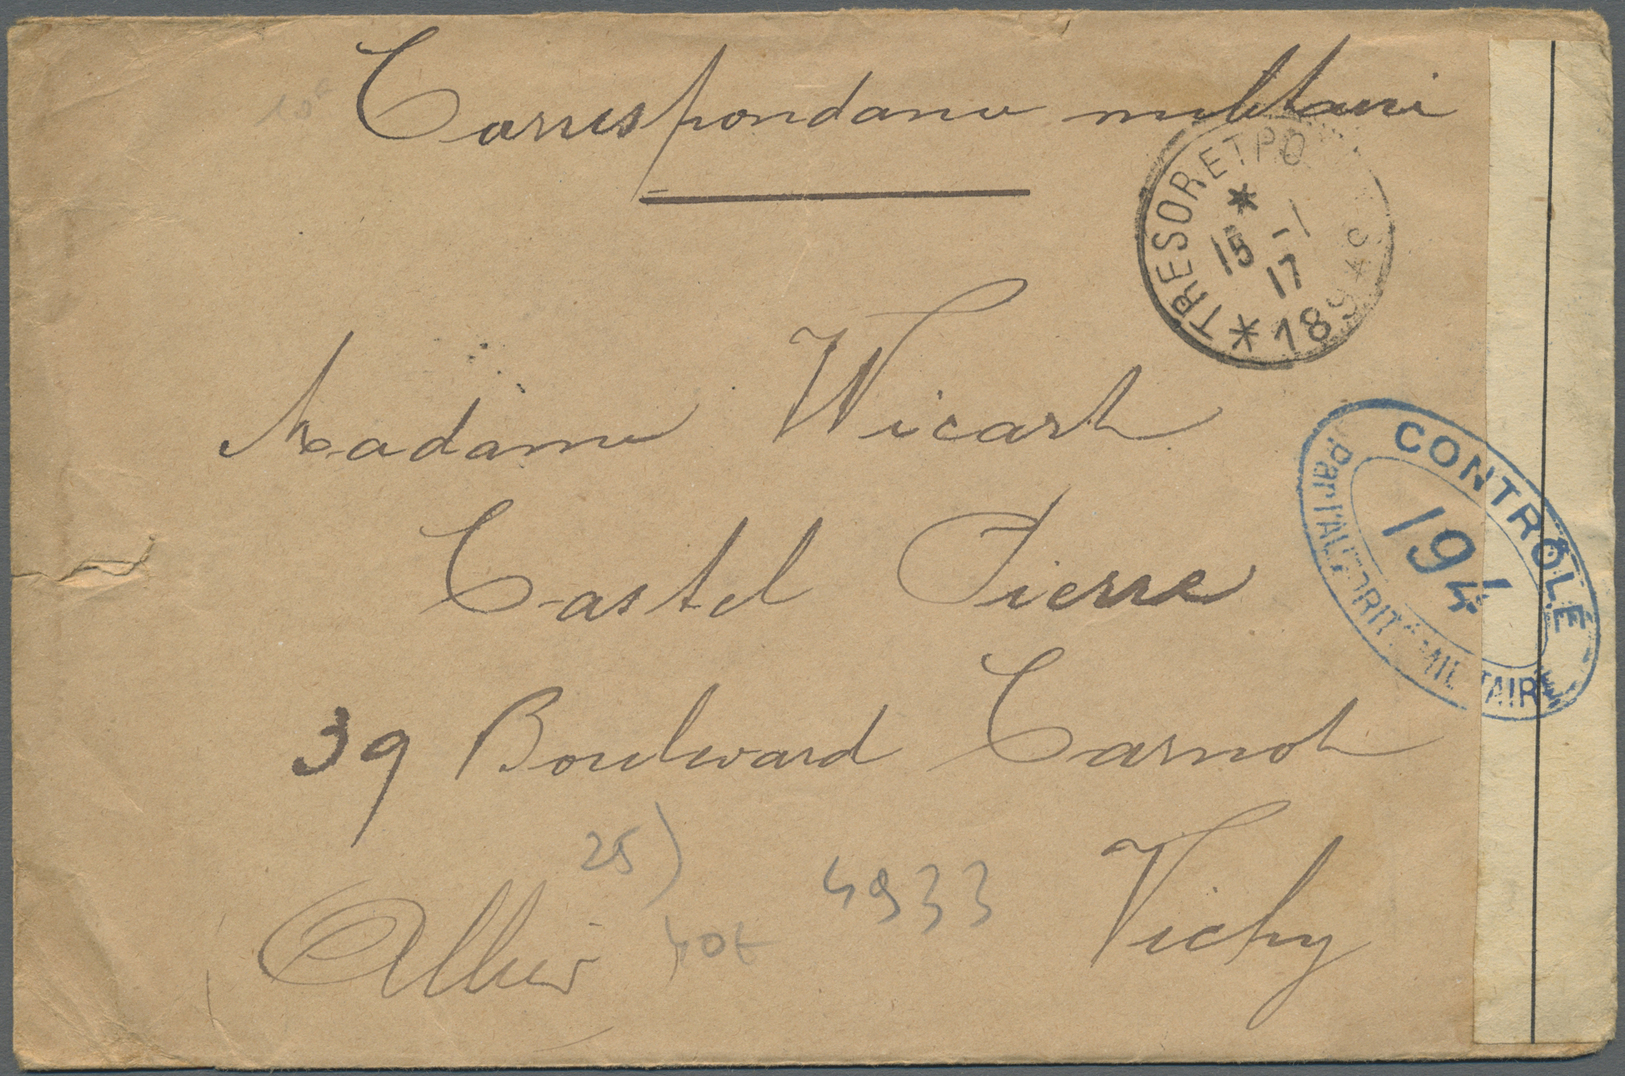 Correspondance militaire
*TRESOR ET PO
*
15 -1
17
*189*
Madame Wicart
CONTRÔLE
194
Par l'AUTORITÉ MILITAIRE
Castel Pierre
39 Boulevard Carnot
25)
4933
Vichy
Allier